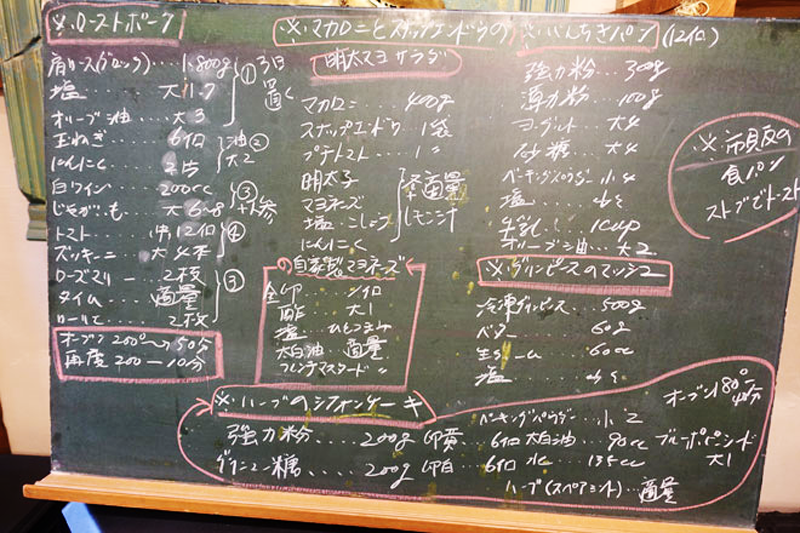 ※ローストポーク
肩ロース(ブロック)....1,800g
塩........大1.7
① 3日置く
オリーブ油....大3
玉ねぎ......6個
にんにく.....2片
油②大2
白ワイン.....200cc
じゃがいも....大6〜8
③
トマト....中12個
ズッキーニ...大4本
④
ローズマリー...2枝
タイム....適量
ローリエ....2枚
③
オーブン200°→50分
再度200—10分
※マカロニとスナップエンドウの
明太マヨサラダ
マカロニ....400g
スナップエンドウ 1袋
プチトマト....1〃
明太子
マヨネーズ
塩 こしょう
にんにく
適量
レモン汁
の自家製マヨネーズ
全卵....1個
酢....大1
塩....ひとつまみ
太白油 適量
フレンチマスタード〃
※はんちきパン(12個)
強力粉....300g
薄力粉....100g
ヨーグルト...大4
砂糖....大4
ベーキングパウダー..小4
塩.....小½
牛乳.....1cup
オリーブ油..大2
※市販の
食パン
ストブでトースト
※グリンピースのマッシュ
冷凍グリンピース....500g
バター....60g
生クリーム....60cc
塩.....小½
※ハーブのシフォンケーキ
強力粉.....200g 卵黄...6個 太白油...90cc
グラニュー糖....200g 卵白..6個 水....135cc
ベーキングパウダー..小2
ハーブ(スペアミント)...適量
ブルーポピーシード
大1
オーブン180°
40分